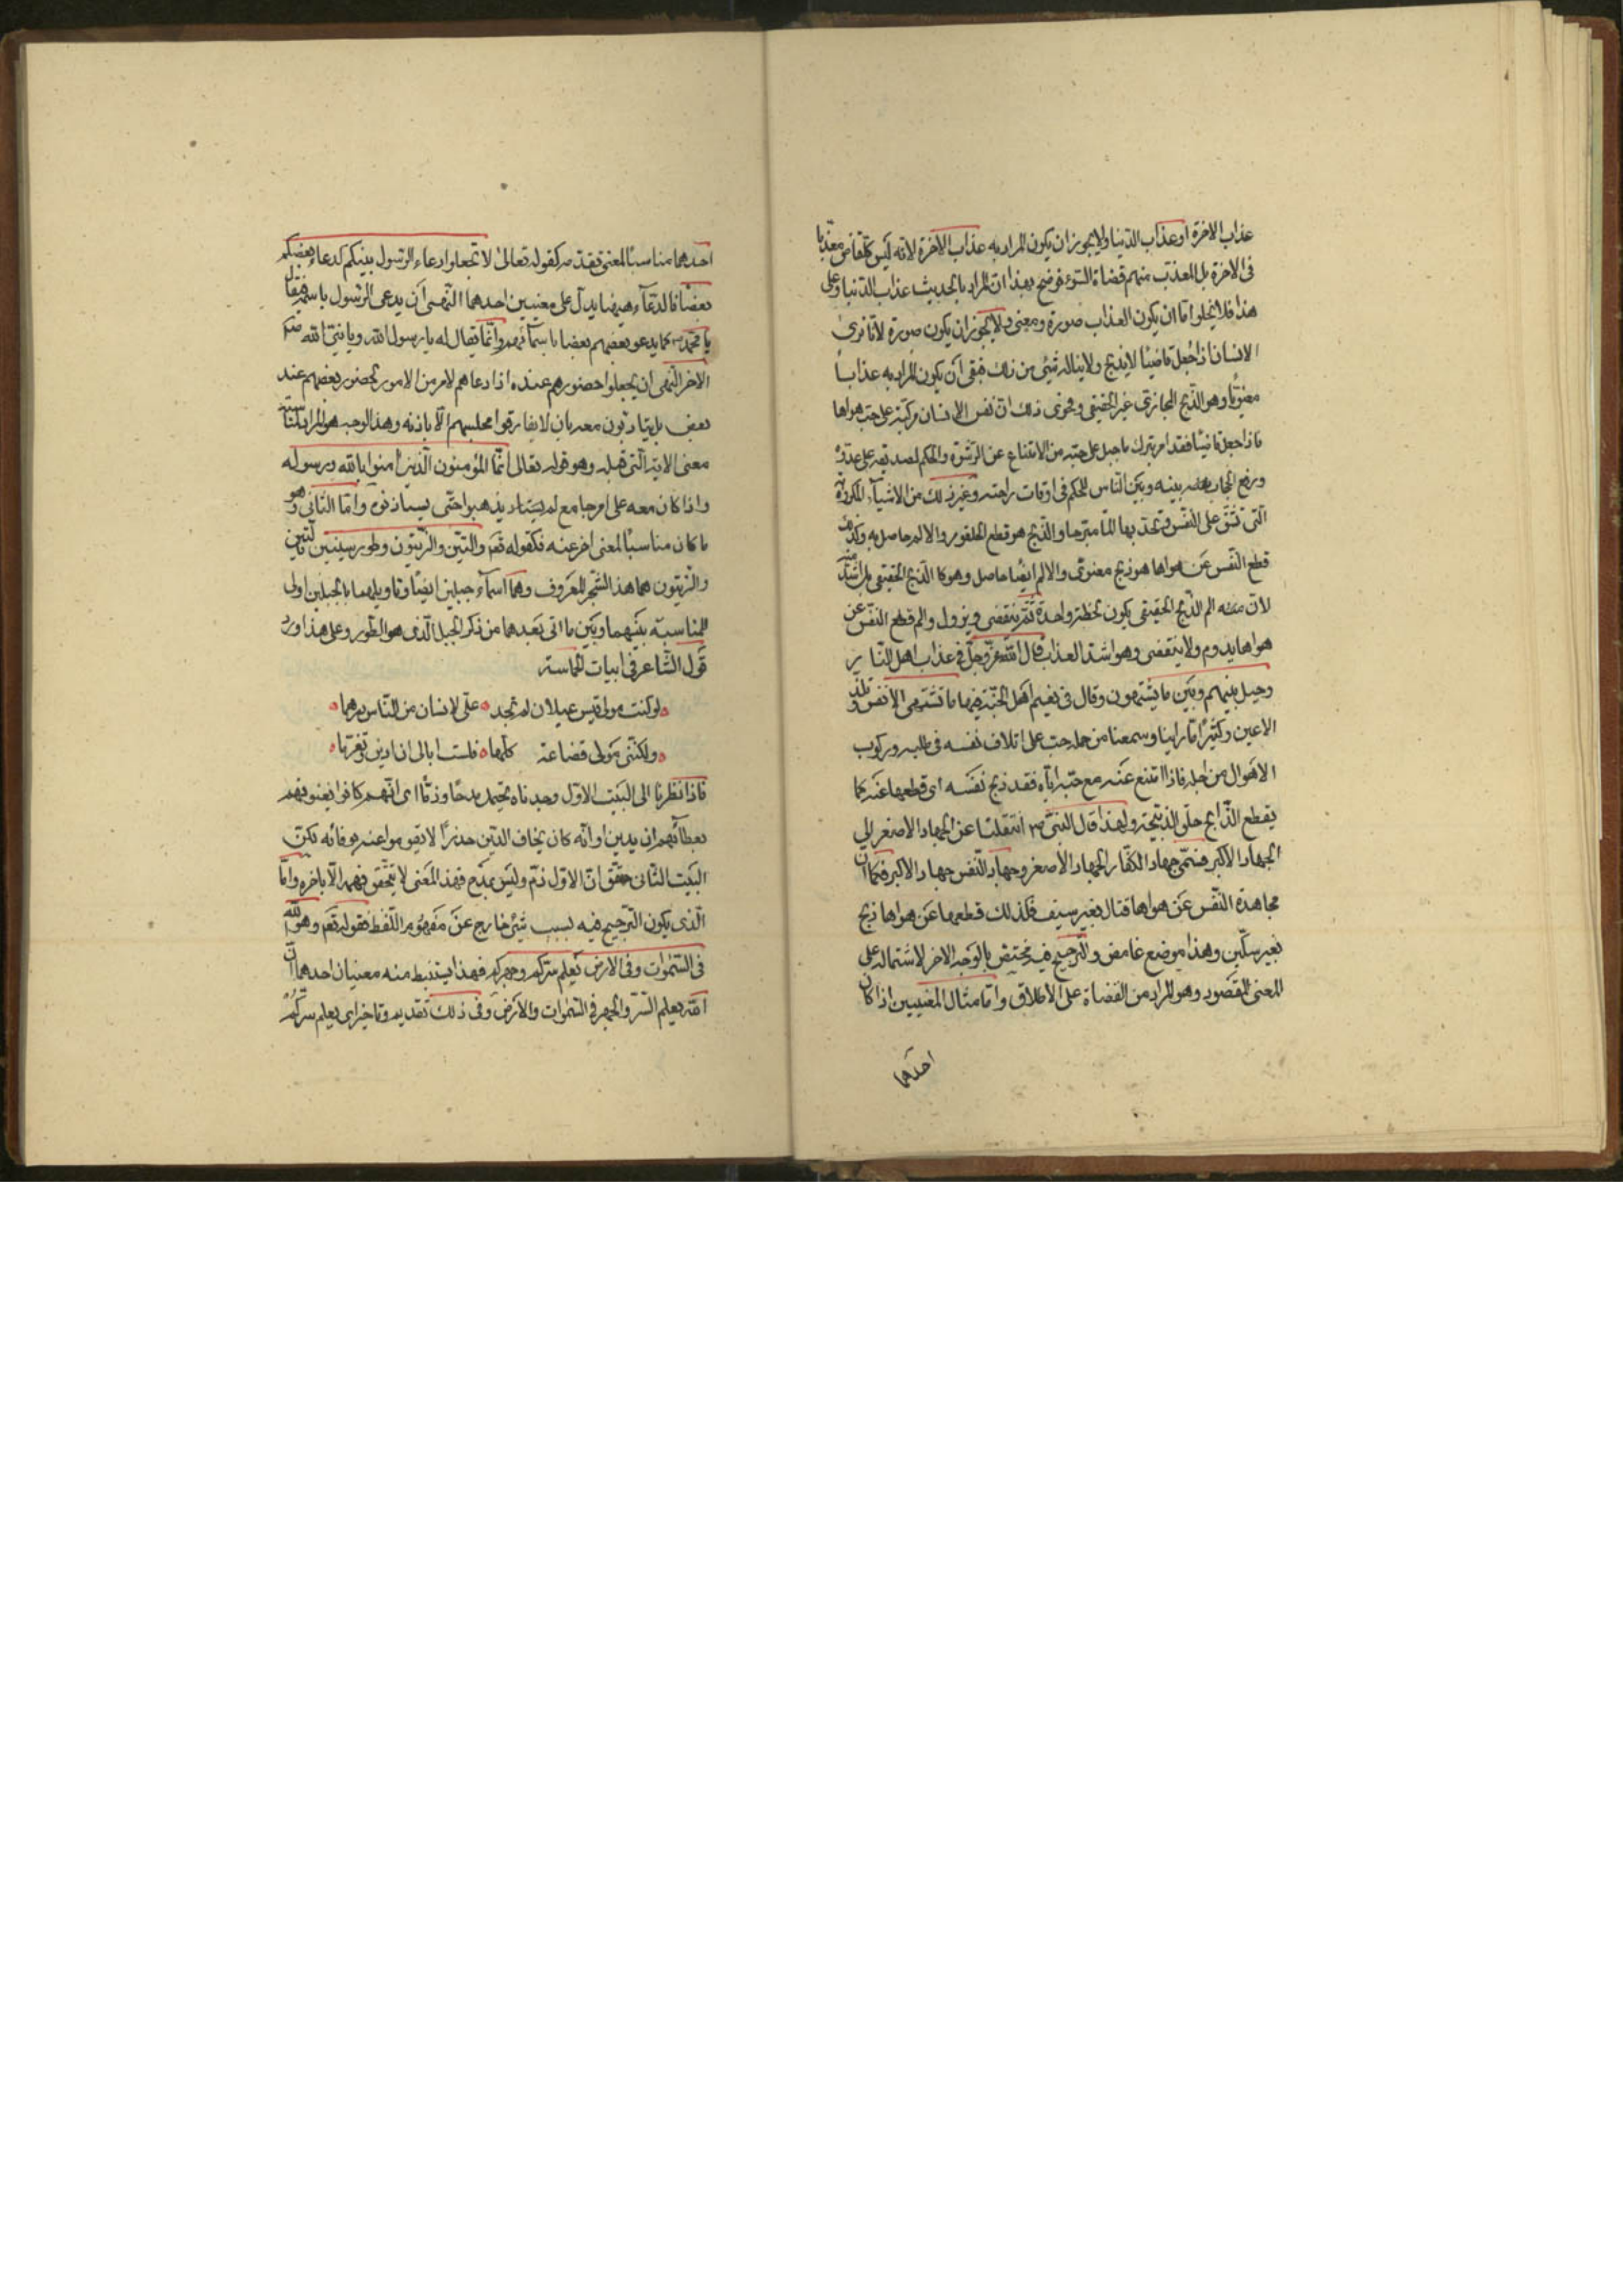 عذاب الاخرة او عذاب الدنيا ولا يجوز ان يكون المراد به عذاب الاخرة لانه ليس كل قاض معذبا
فى الاخرة بل المعذب منهم قضاة السوء فوضح بهذا ان المراد بالحديث عذاب الدنيا وعلى
هذا فلا يخلوا اما ان يكون العذاب صورة ومعنى ولا يجوز ان يكون صورة لانا نرى
الانسان اذا جعل قاضيا لا يذبح ولا يناله شيئ من ذلك فبقى ان يكون المراد به عذابا
معنويا وهو الذبح المجازى غير الحقيقى وفحوى ذلك ان نفس الانسان مركبة على حب هواها
فاذا جعل قاضيا فقد امر بترك ما جبل على حبه من الامتناع عن الرشوة والحكم لصديقه على عدوه
ورفع الحجاب بينه وبين الناس للحكم فى اوقات راحته وغير ذلك من الاشياء المكروهة
التى تشق على النفس وتجد بها الما مبرحا والذبح هو قطع الحلقوم والالم حاصل به وكذلك
قطع النفس عن هواها هو ذبح معنوى والالم ايضا حاصل وهو كالذبح الحقيقى بل اشد منه
لان الم الذبح الحقيقى يكون لحظة واحدة ثم ينقضى ويزول والم قطع النفس عن
هواها يدوم ولا ينقضى وهو اشد العذاب قال الله عز وجل فى عذاب اهل النار
وحيل بينهم وبين ما يشتهون وقال فى نعيم اهل الجنة فيها ما تشتهى الانفس وتلذ
الاعين وكثيرا ما راينا وسمعنا من حمله حب على اتلاف نفسه فى طلبه وركوب
الاهوال من اجله فاذا امتنع عنه مع حبه اياه فقد ذبح نفسه اى قطعها عنه كما
يقطع الذابح حلق الذبيحة ولهذا قال النبى ص انتقلنا عن الجهاد الاصغر الى
الجهاد الاكبر فسمى جهاد الكفار الجهاد الاصغر وجهاد النفس جهاد الاكبر فكما ان
مجاهدة النفس عن هواها قتال بغير سيف فكذلك قطعها عن هواها ذبح
بغير سكين وهذا موضع غامض والترجيح فيه مختص بالوجه الاخر لاشتماله على
المعنى المقصود وهو المراد من القضاة على الاطلاق واما مثال المعنيين اذا كان
احدهما
احدهما مناسبا لمعنى تقدمه كقوله تعالى لا تجعلوا دعاء الرسول بينكم كدعاء بعضكم
بعضا فالدعاء هيهنا يدل على معنيين احدهما النهى ان يدعى الرسول باسمه فيقال
يا محمد كما يدعو بعضهم بعضا باسمائهم وانما يقال له يا رسول الله ويا نبى الله
الاخر النهى ان يجعلوا حضورهم عنده اذا دعاهم لامر من الامور كحضور بعضهم عند
بعض بل يتادبون معه بان لا يفارقوا مجلسهم الا باذنه وهذا الوجه هو المراد
معنى الاية التى قبله وهو قوله تعالى انما المؤمنون الذين امنوا بالله ورسوله
واذا كان معه على امر جامع لم يذهبوا حتى يستاذنوه واما الثانى وهو
ما كان مناسبا لمعنى اخر عنه فكقوله تعم والتين والزيتون وطور سينين
والزيتون هما هذا الشجر المعروف وهما اسماء جبلين ايضا وتاويلهما بالجبلين اولى
للمناسبة بينهما وبين ما اتى بعدهما من ذكر الجبل الذى هو الطور وعلى هذا ورد
قول الشاعر فى ابيات الحماسة
لو كنت مولى قيس عيلان لم تجد على لانسان من الناس درهما
ولكننى مولى قضاعة كلها فلست ابالى ان ادين وتغرما
فاذا نظرنا الى البيت الاول وجدناه يحتمل مدحا وذما اى انهم كانوا يغنونه
بعطائهم ان يدين او انه كان يخاف الدين حذرا لا يقوموا عنه بوفائه لكن
البيت الثانى حقق ان الاول ذم وليس بمدح فهذا المعنى لا يتحقق فهمه الا باخره واما
الذى يكون الترجيح فيه بسبب شيئ خارج عن مفهوم اللفظ فقوله تعم وهو الله
فى السموات وفى الارض يعلم سركم وجهركم فهذا يستنبط منه معنيان احدهما ان
الله يعلم السر والجهر فى السموات والارض وفى ذلك تقديم وتاخير اى يعلم سركم